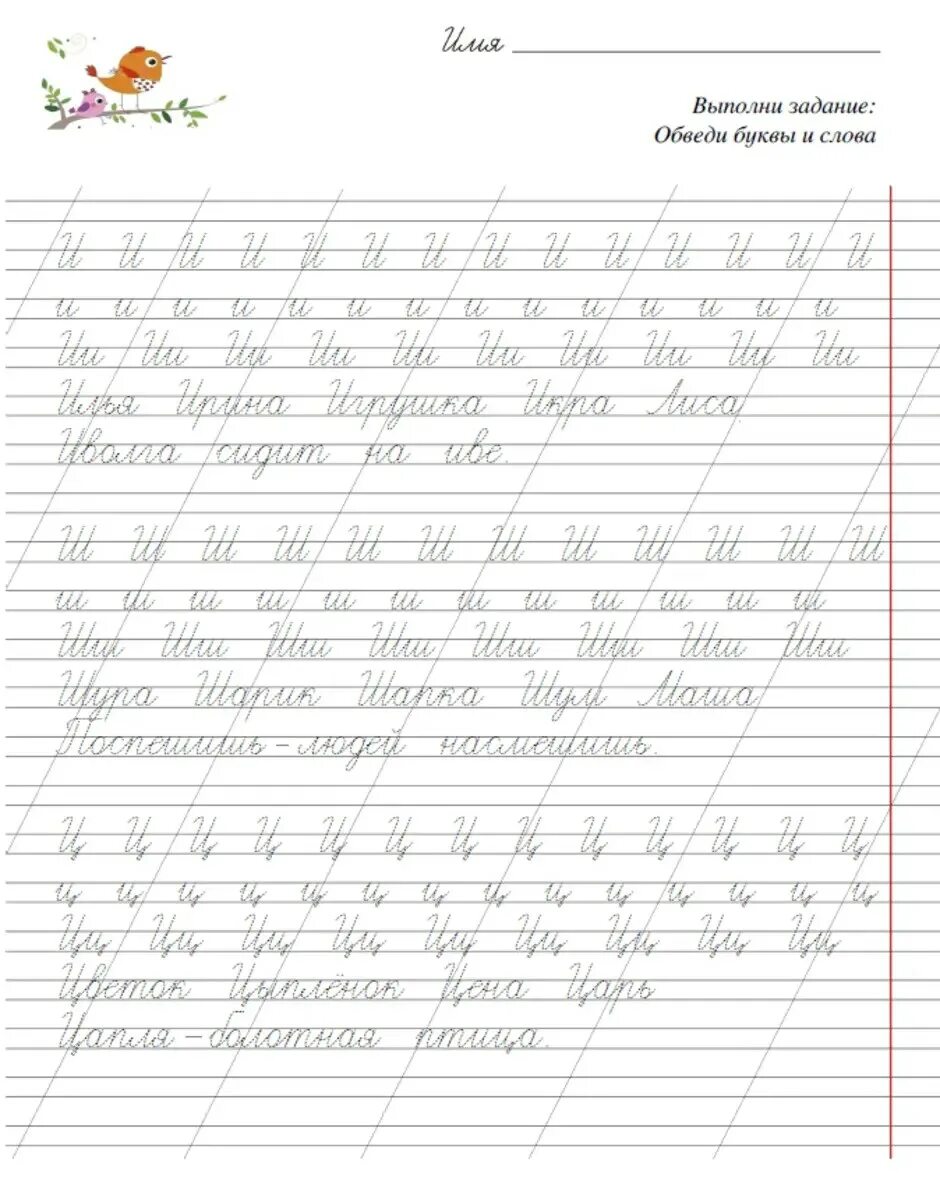 Имя
Выполни задание:
Обведи буквы и слова
И И И И И И И И И И И И И И
и и и и и и и и и и и и и и
Ии Ии Ии Ии Ии Ии Ии Ии Ии Ии
Илья Ирина Игрушка Икра Лиса
Иволга сидит на иве.
Ш Ш Ш Ш Ш Ш Ш Ш Ш Ш Ш Ш
ш ш ш ш ш ш ш ш ш ш ш ш
Шш Шш Шш Шш Шш Шш Шш Шш
Шура Шарик Шапка Шум Маша
Поспешишь – людей насмешишь.
Ц Ц Ц Ц Ц Ц Ц Ц Ц Ц Ц Ц Ц
ц ц ц ц ц ц ц ц ц ц ц ц ц ц
Цц Цц Цц Цц Цц Цц Цц Цц Цц
Цветок Цыплёнок Цена Царь
Цапля – болотная птица.